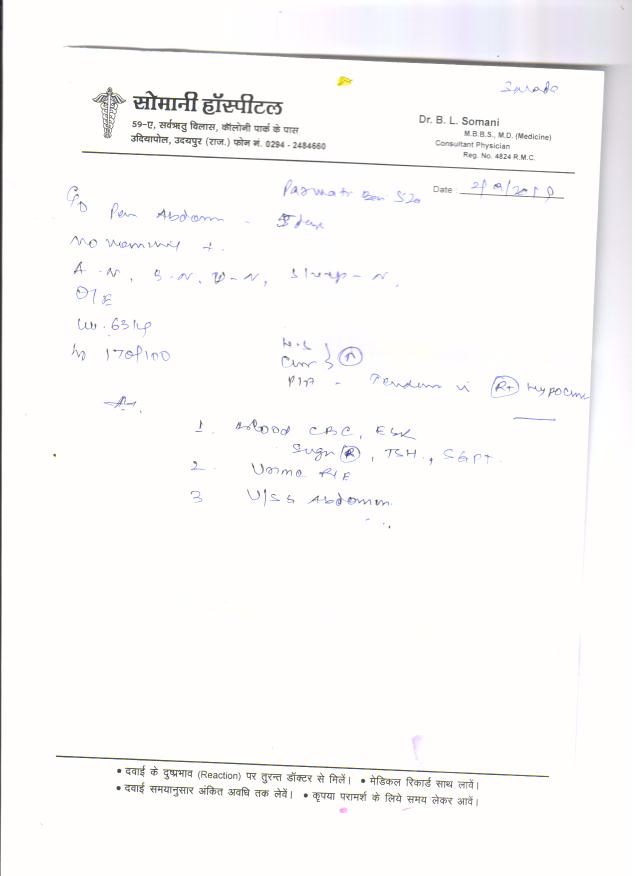 सोमानी हॉस्पीटल
59-ए, सर्वऋतु विलास, कॉलोनी पार्क के पास
उदियापोल, उदयपुर (राज.) फोन नं. 0294 - 2484660
Dr. B. L. Somani
M.B.B.S., M.D. (Medicine)
Consultant Physician
Reg. No. 4824 R.M.C.
Date :
C/o Pain Abdomen -
No vomiting +.
A - N, S - N, U - N, Sleep - N.
O/E
170/100
P/A - Tenderness in Rt Hypoch
1. Blood CBC, ESR
Sugar (R), TSH, SGPT.
2. Urine R/E
3 U/S Abdomen
• दवाई के दुष्प्रभाव (Reaction) पर तुरन्त डॉक्टर से मिलें। • मेडिकल रिकार्ड साथ लावें।
• दवाई समयानुसार अंकित अवधि तक लेवें। • कृपया परामर्श के लिये समय लेकर आवें।